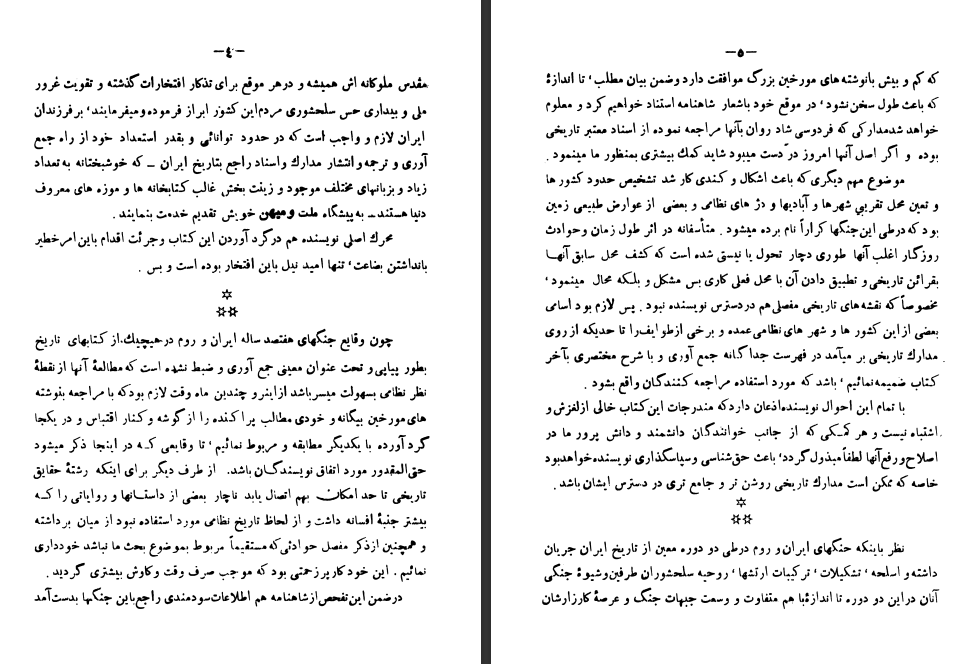 —٤—
مقدس ملوکانه اش همیشه و در هر موقع برای تذکار افتخارات گذشته و تقویت غرور
ملی و بیداری حس سلحشوری مردم این کشور ابراز فرموده و میفرمایند، بر فرزندان
ایران لازم و واجب است که در حدود توانائی و بقدر استعداد خود از راه جمع
آوری و ترجمه و انتشار مدارك و اسناد راجع بتاریخ ایران ــ که خوشبختانه به تعداد
زیاد و بزبانهای مختلف موجود و زینت بخش غالب کتابخانه ها و موزه های معروف
دنیا هستند ــ به پیشگاه ملت و میهن خویش تقدیم خدمت بنمایند .
محرك اصلی نویسنده هم در گرد آوردن این کتاب و جرئت اقدام باین امر خطیر
بانداشتن بضاعت، تنها امید نیل باین افتخار بوده است و بس .
✡
✡✡
چون وقایع جنگهای هفتصد ساله ایران و روم در هیچیك از کتابهای تاریخ
بطور پیاپی و تحت عنوان معینی جمع آوری و ضبط نشده است که مطالعهٔ آنها از نقطهٔ
نظر نظامی بسهولت میسر باشد از اینرو چندین ماه وقت لازم بود که با مراجعه بنوشته
های مورخین بیگانه و خودی مطالب پراکنده را از گوشه و کنار اقتباس و در یکجا
گرد آورده با یکدیگر مطابقه و مربوط نمائیم، تا وقایعی که در اینجا ذکر میشود
حتی المقدور مورد اتفاق نویسندگان باشد. از طرف دیگر برای اینکه رشتهٔ حقایق
تاریخی تا حد امکان بهم اتصال یابد ناچار بعضی از داستانها و روایاتی را که
بیشتر جنبهٔ افسانه داشت و از لحاظ تاریخ نظامی مورد استفاده نبود از میان برداشته
و همچنین از ذکر مفصل حوادثی که مستقیماً مربوط بموضوع بحث ما نباشد خودداری
نمائیم . این خود کار پر زحمتی بود که موجب صرف وقت و کاوش بیشتری گردید .
در ضمن این تفحص از شاهنامه هم اطلاعات سودمندی راجع باین جنگها بدست آمد
—٥—
که کم و بیش بانوشته های مورخین بزرگ موافقت دارد و ضمن بیان مطلب، تا اندازهٔ
که باعث طول سخن نشود، در موقع خود باشعار شاهنامه استناد خواهیم کرد و معلوم
خواهد شد مدارکی که فردوسی شاد روان بآنها مراجعه نموده از اسناد معتبر تاریخی
بوده و اگر اصل آنها امروز در دست میبود شاید کمك بیشتری بمنظور ما مینمود .
موضوع مهم دیگری که باعث اشکال و کندی کار شد تشخیص حدود کشور ها
و تعین محل تقریبی شهرها و آبادیها و دژ های نظامی و بعضی از عوارض طبیعی زمین
بود که در طی این جنگها کراراً نام برده میشود . متأسفانه در اثر طول زمان و حوادث
روزگار اغلب آنها طوری دچار تحول یا نیستی شده است که کشف محل سابق آنها
بقرائن تاریخی و تطبیق دادن آن با محل فعلی کاری بس مشکل و بلکه محال مینمود،
مخصوصاً که نقشه های تاریخی مفصلی هم در دسترس نویسنده نبود . پس لازم بود اسامی
بعضی از این کشور ها و شهر های نظامی عمده و برخی از طوایف را تا حدیکه از روی
مدارك تاریخی بر میآمد در فهرست جداگانه جمع آوری و با شرح مختصری بآخر
کتاب ضمیمه نمائیم، باشد که مورد استفاده مراجعه کنندگان واقع بشود .
با تمام این احوال نویسنده اذعان دارد که مندرجات این کتاب خالی از لغزش و
اشتباه نیست و هر کمکی که از جانب خوانندگان دانشمند و دانش پرور ما در
اصلاح و رفع آنها لطفاً مبذول گردد، باعث حق شناسی و سپاسگذاری نویسنده خواهد بود
خاصه که ممکن است مدارك تاریخی روشن تر و جامع تری در دسترس ایشان باشد .
✡
✡✡
نظر باینکه جنگهای ایران و روم در طی دو دوره معین از تاریخ ایران جریان
داشته و اسلحه، تشکیلات، ترکیبات ارتشها، روحیه سلحشوران طرفین و شیوهٔ جنگی
آنان در این دو دوره تا اندازهٔ با هم متفاوت و وسعت جبهات جنگ و عرصهٔ کارزارشان